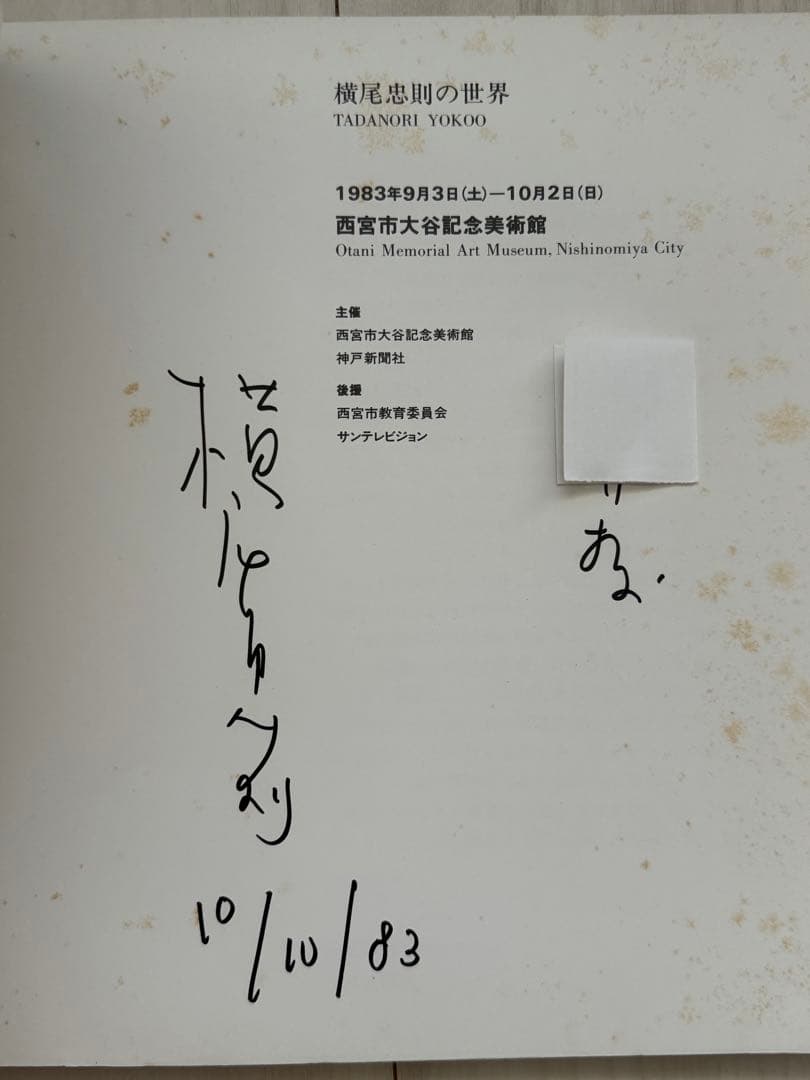 横尾忠則の世界
TADANORI YOKOO
1983年9月3日(土)—10月2日(日)
西宮市大谷記念美術館
Otani Memorial Art Museum, Nishinomiya City
主催
西宮市大谷記念美術館
神戸新聞社
後援
西宮市教育委員会
サンテレビジョン
横尾忠則
10/10/83